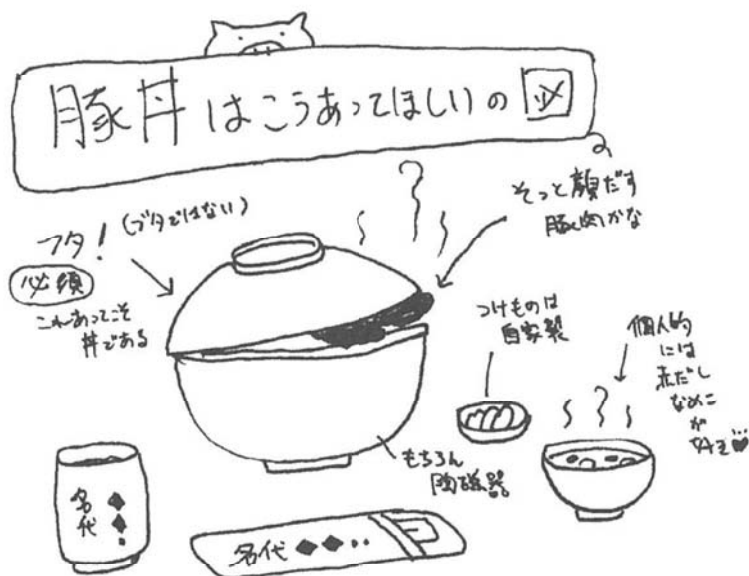 豚丼はこうあってほしいの図
フタ！(ブタではない)
必須
これあってこそ
丼である
そっと顔だす
豚肉かな
つけものは
自家製
個人的
には
赤だし
なめこ
が
好き…♥
もちろん
陶磁器
名代◆◆・
名代◆◆・・